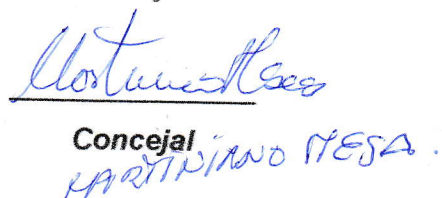 Concejal
MARTINIANO MESA.